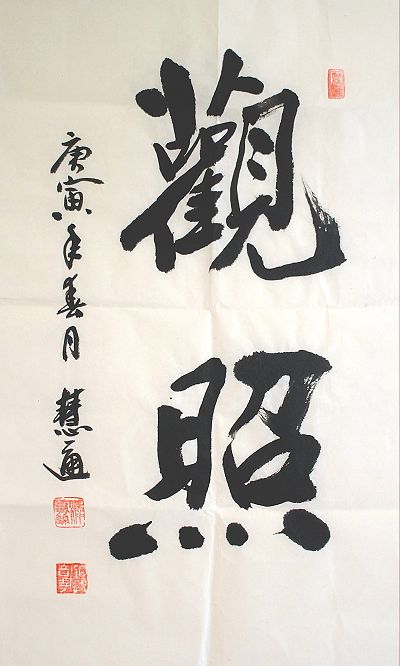 觀照
庚寅年春月 慧通